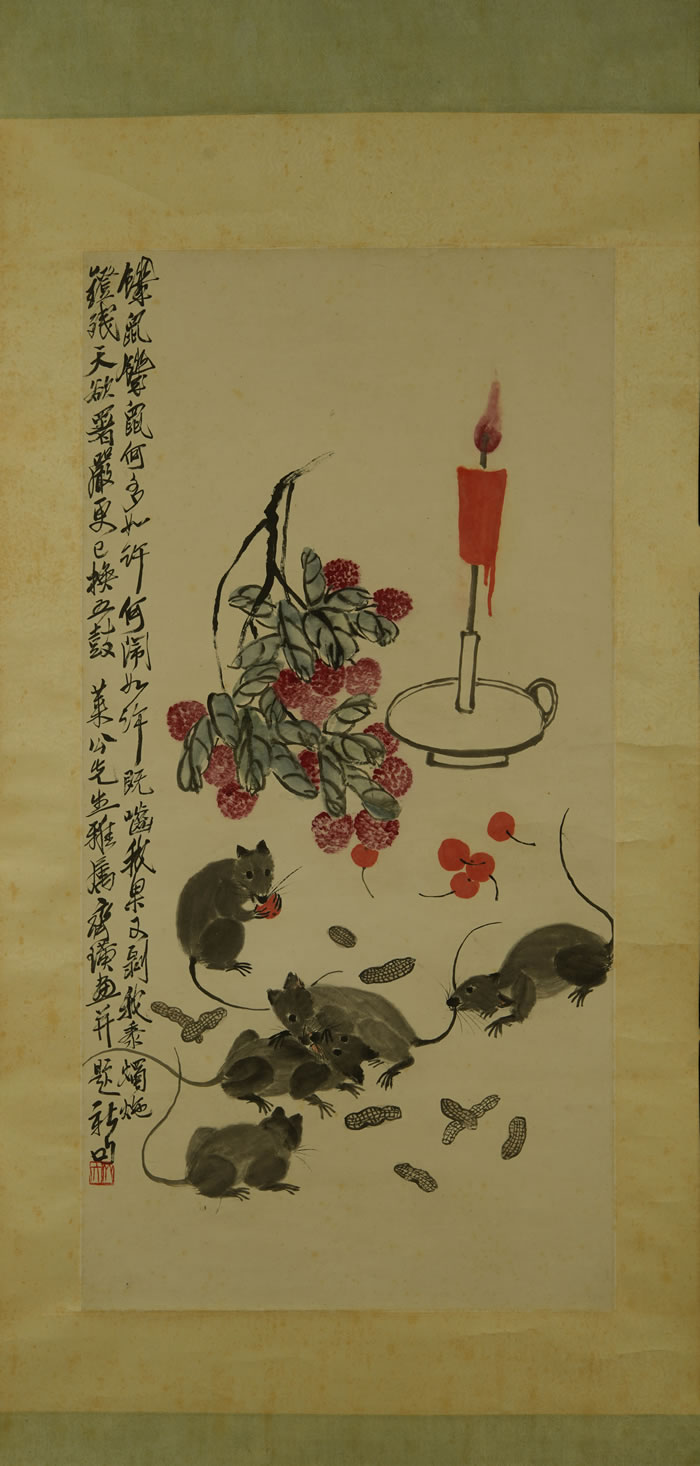 饞鼠饞鼠何多如許何鬧如許既嚙我果又剝我黍燭灺
鐙殘天欲曙嚴更已換五鼓 萊公先生雅屬齊璜畫并題新句